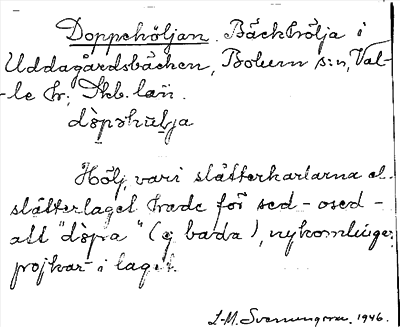 Doppehöljan. Bäckhölja i
Uddagårdsbäcken, Bolum s:n, Val-
-le hr; Skb. län.
döpəhulja
Hölj, vari slåtterkarlarna el.
slåtterlaget hade för sed - osed -
att "döpa" (ɔ: bada), nykomlingar
pojkar i laget.
L-M. Svenungsson. 1946.